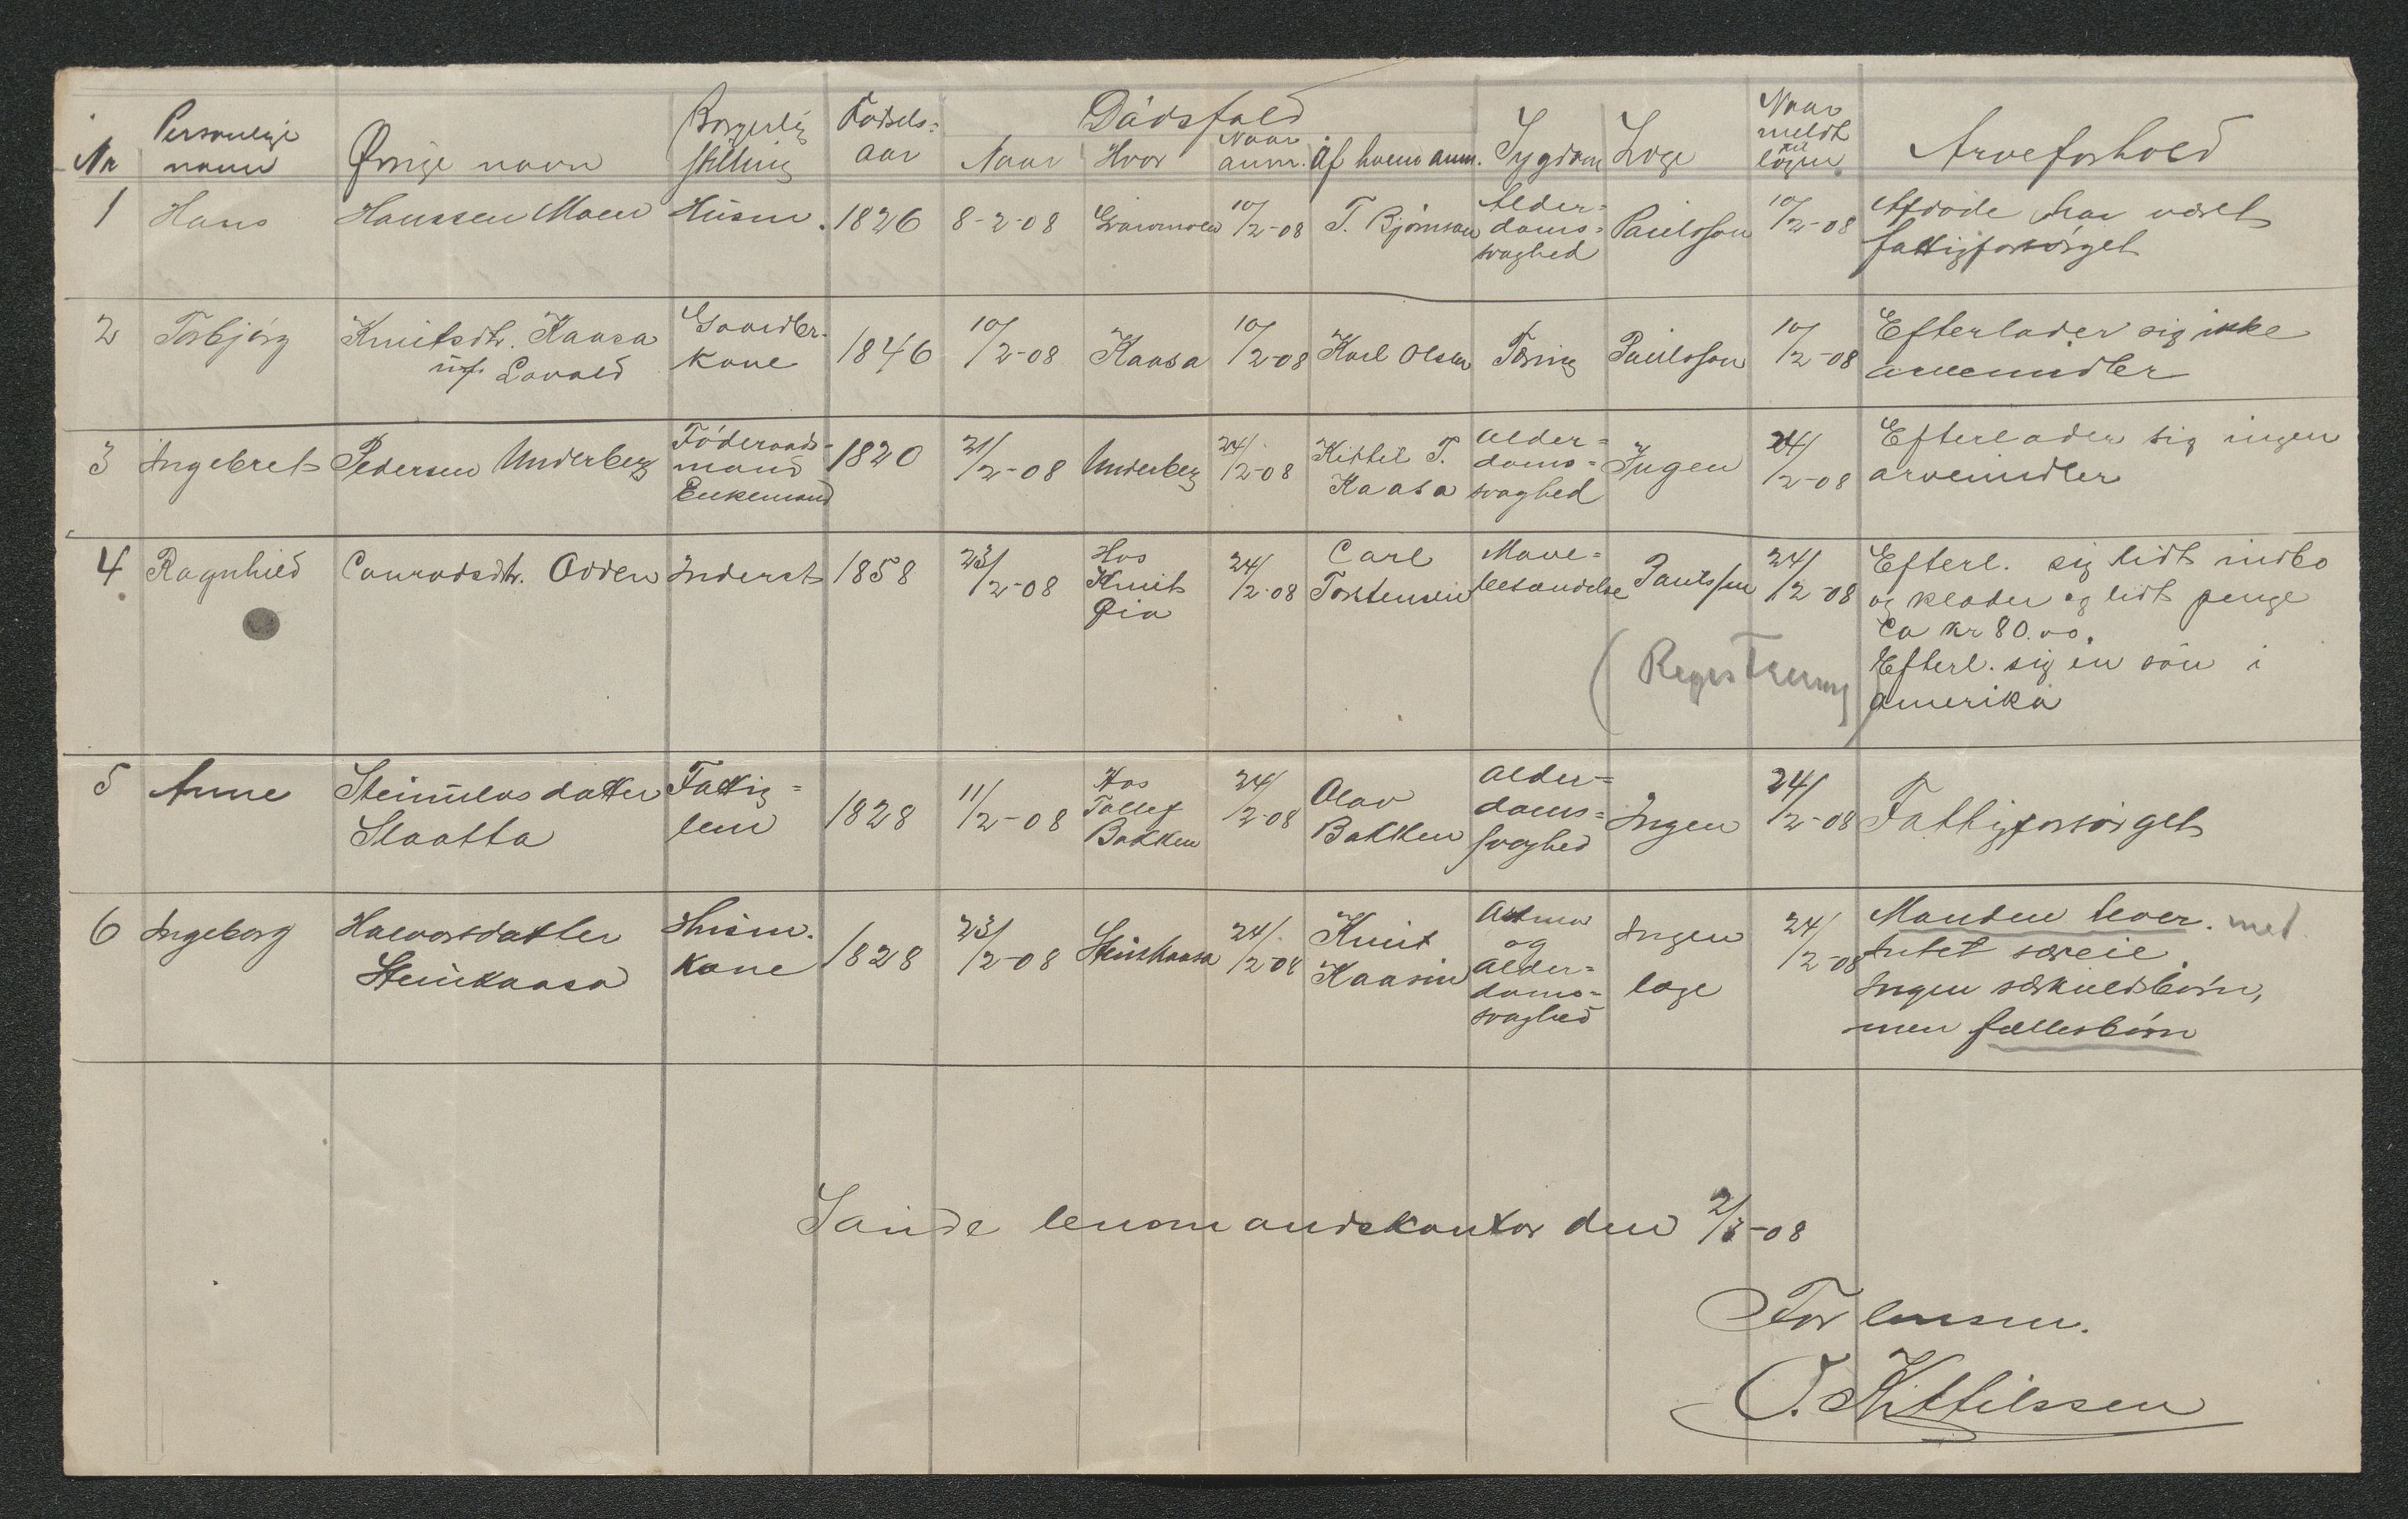 Nr Personlige navn Øvrige navn Borgerlig stilling Fødsels= aar Dødsfald Naar Hvor Naar anm. Af hvem anm. Sygdom Læge Naar meldt til lægen Arveforhold
1 Hans Hanssen Moen Husm. 1826 8-2-08 10/2-08 T. Bjørnson Alder= doms= svaghed Paulsson 10/2-08 Afdøde har været
fattigforsørget
2 Torbjørg Knutsdtr. Kaasa Gaardbr. kone 1846 10/2-08 Kaasa 10/2-08 Karl Olsen Tæring Paulsson 10/2-08 Efterlader sig ikke
umf. Lovald arveumdler
3 Ingebret Pedersen Underberg Föderaads= mand Enkemand 1820 21/2-08 Underberg 24/2-08 Kittil T. Kaasa alder= doms= svaghed Ingen 24/2-08 Efterlader sig ingen
arveumdler
4 Ragnhild Conradsdtr. Odden Inderst 1858 23/2-08 Hos Knut Øia 24/2-08 Carl Torstensen Mave= betændelse Paulsson 24/2-08 Efterl. sig lidt indbo
og klæder og lidt penge
Ca kr 80.00.
Efterl. sig en søn i
amerika
(Registrering)
5 Anne Steinulvsdatter Slaatta Fattig= lem 1828 11/2-08 Hos Tollef Bakken 24/2-08 Olav Bakken alder= doms= svaghed Ingen 24/2-08 Fattigforsørget
6 Ingeborg Halvorsdatter Steinkaasa Husm. kone 1828 23/2-08 Steinkaasa 24/2-08 Knut Kaasin Astma og alder= doms= svaghed Ingen læge 24/2-08 Manden lever. med
Intet særeie.
Ingen særkuldsbørn,
men fællesbørn
Saude lensmandskontor den 2/3-08
For lensm.
O. Kittilssen